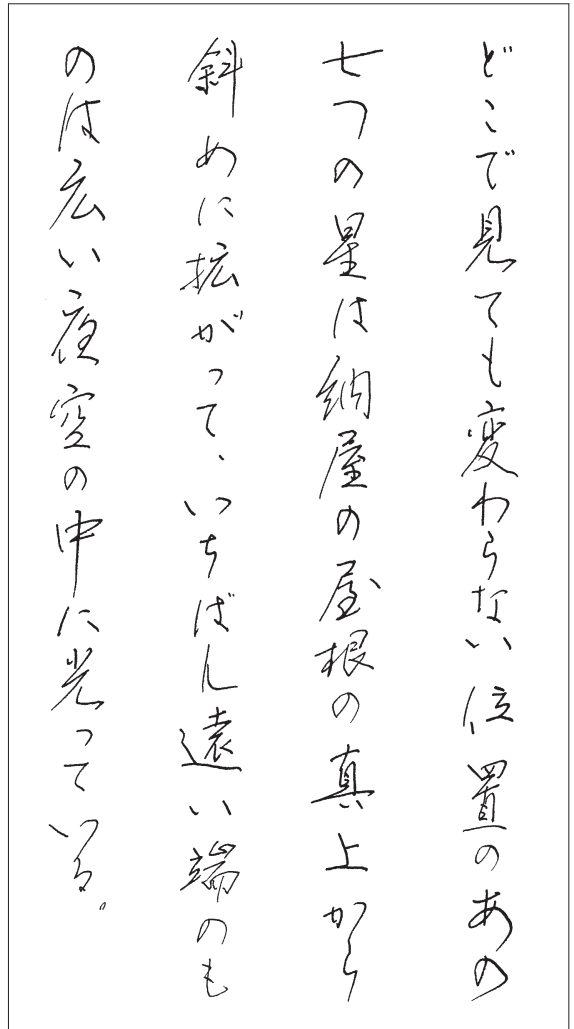 どこで見ても変わらない位置のあの
七つの星は納屋の屋根の真上から
斜めに拡がって、いちばん遠い端のも
のは広い夜空の中に光っている。